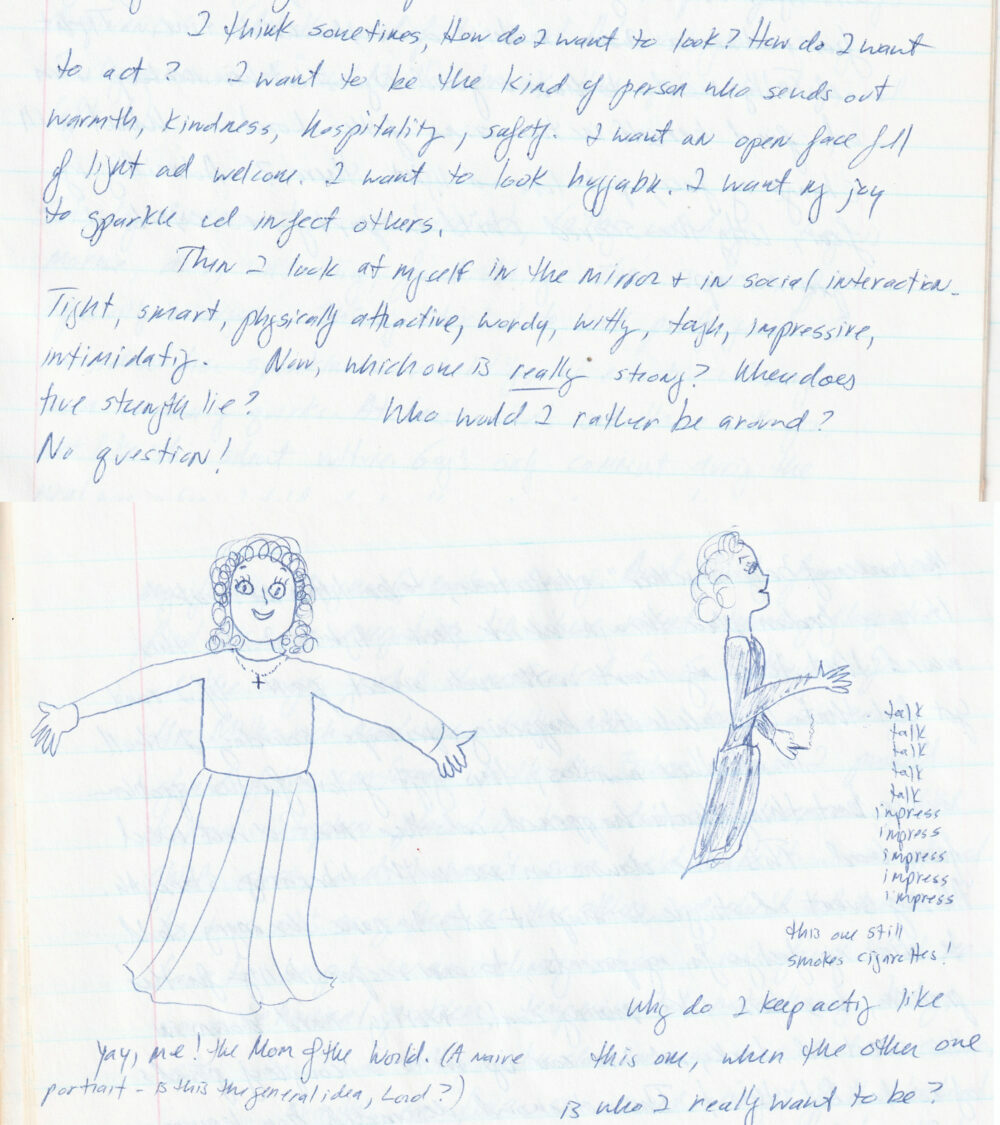 I think sometimes, How do I want to look? How do I want
to act? I want to be the kind of person who sends out
warmth, kindness, hospitality, safety. I want an open face full
of light and welcome. I want to look huggable. I want my joy
to sparkle and infect others.
Then I look at myself in the mirror + in social interaction -
Tight, smart, physically attractive, wordy, witty, tough, impressive,
intimidating. Now, which one is really strong? Where does
true strength lie? Who would I rather be around?
No question!
talk
talk
talk
talk
talk
impress
impress
impress
impress
impress
this one still
smokes cigarettes!
Yay, me! The Mom of the World. (A naive
portrait - is this the general idea, Lord?)
Why do I keep acting like
this one, when the other one
is who I really want to be?